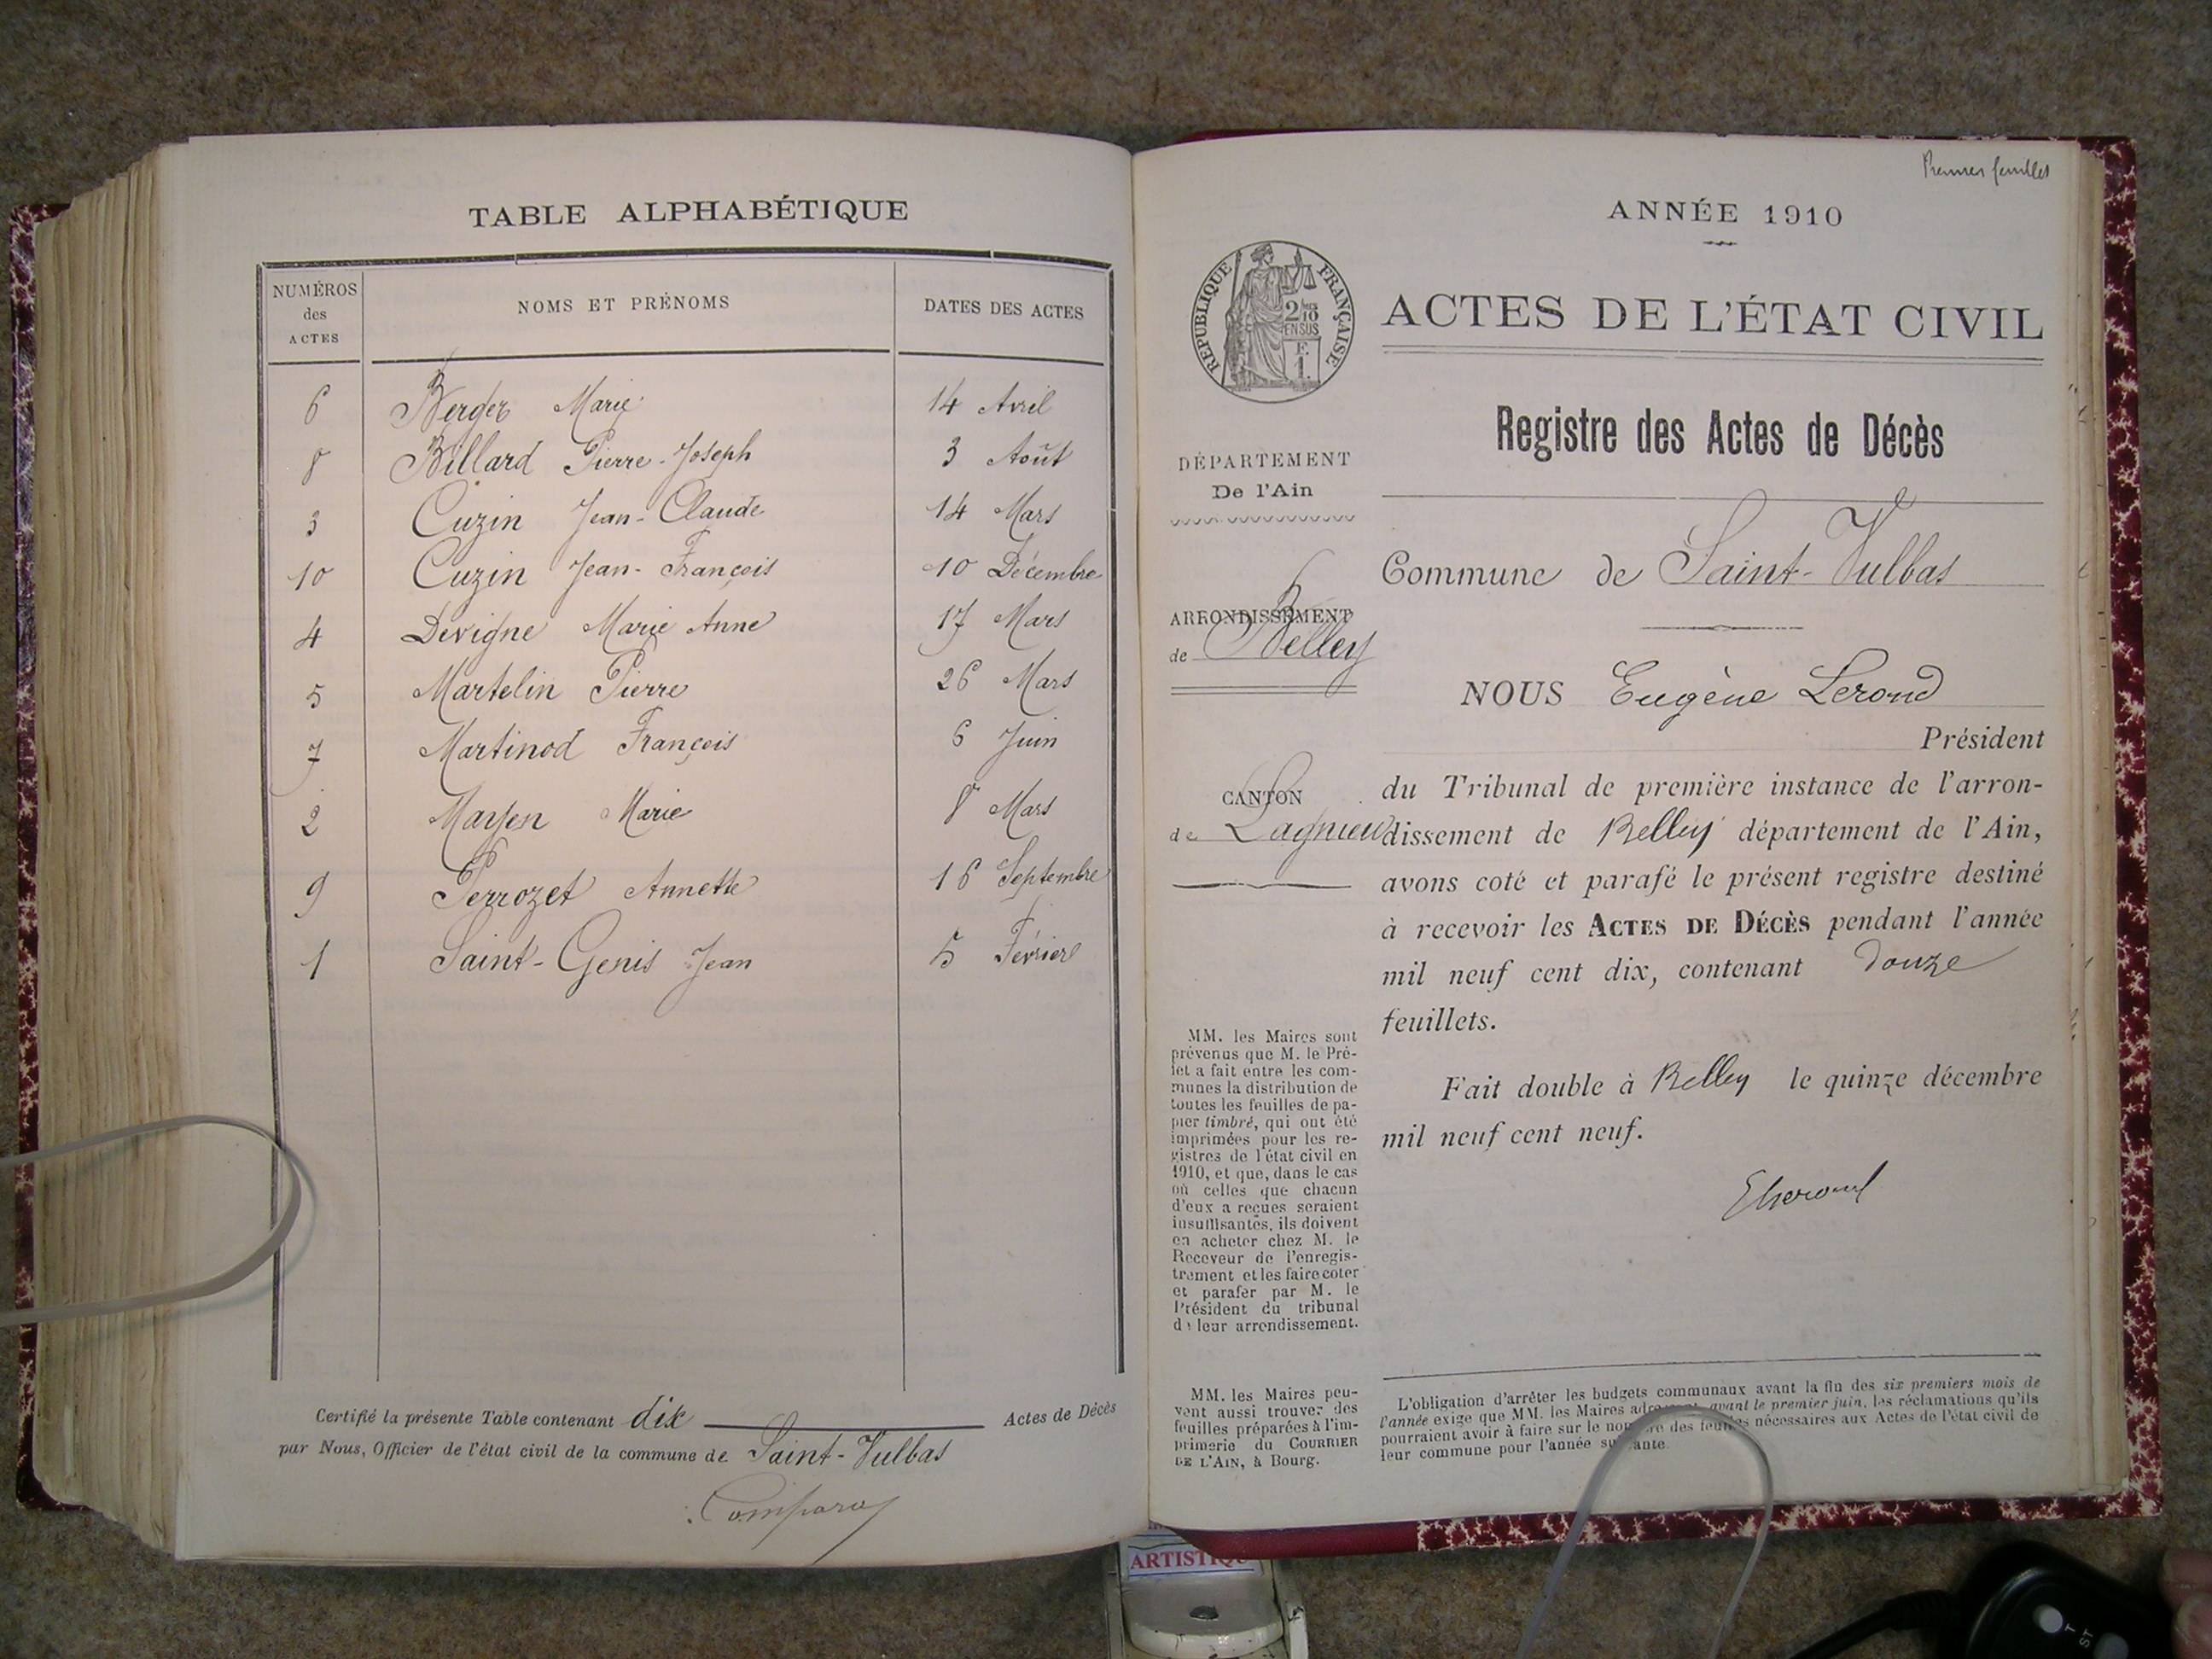 TABLE ALPHABÉTIQUE
NUMÉROS des ACTES
NOMS ET PRÉNOMS
DATES DES ACTES
6 Berger Marie 14 Avril
8 Billard Pierre-Joseph 3 Août
3 Cuzin Jean-Claude 14 Mars
10 Cuzin Jean-François 10 Décembre
4 Devigne Marie Anne 17 Mars
5 Martelin Pierre 26 Mars
7 Martinod François 6 Juin
2 Mayen Marie 8 Mars
9 Perrozet Annette 16 Septembre
1 Saint-Genis Jean 5 Février
Certifié la présente Table contenant dix Actes de Décès
par Nous, Officier de l'état civil de la commune de Saint-Vulbas
Premier feuillet
ANNÉE 1910
RÉPUBLIQUE FRANÇAISE
2/10
EN SUS
F.
1.
ACTES DE L'ÉTAT CIVIL
Registre des Actes de Décès
DÉPARTEMENT
De l'Ain
Commune de Saint-Vulbas
ARRONDISSEMENT
de Belley
NOUS Eugène Lerond
Président
CANTON
de Lagnieu
du Tribunal de première instance de l'arron-
dissement de Belley département de l'Ain,
avons coté et parafé le présent registre destiné
à recevoir les ACTES DE DÉCÈS pendant l'année
mil neuf cent dix, contenant douze
feuillets.
Fait double à Belley le quinze décembre
mil neuf cent neuf.
MM. les Maires sont
prévenus que M. le Pré-
fet a fait entre les com-
munes la distribution de
toutes les feuilles de pa-
pier timbré, qui ont été
imprimées pour les re-
gistres de l'état civil en
1910, et que, dans le cas
où celles que chacun
d'eux a reçues seraient
insuffisantes, ils doivent
en acheter chez M. le
Receveur de l'enregis-
trement et les faire coter
et parafer par M. le
Président du tribunal
de leur arrondissement.
MM. les Maires peu-
vent aussi trouver des
feuilles préparées à l'im-
primerie du COURRIER
DE L'AIN, à Bourg.
L'obligation d'arrêter les budgets communaux avant la fin des six premiers mois de
l'année exige que MM. les Maires adressent, avant le premier juin, les réclamations qu'ils
pourraient avoir à faire sur le nombre des feuilles nécessaires aux Actes de l'état civil de
leur commune pour l'année suivante.
ARTISTIQU
T
ST